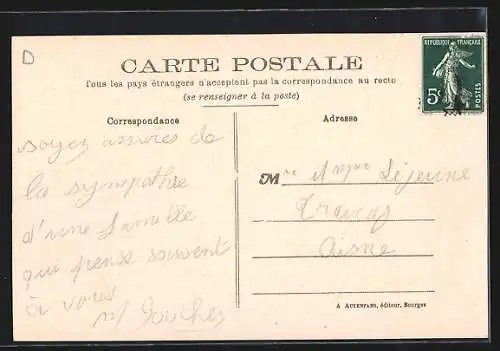 D
CARTE POSTALE
Tous les pays étrangers n'acceptent pas la correspondance au recto
(se renseigner à la poste)
RÉPUBLIQUE FRANÇAISE
5c
POSTES
Correspondance
Adresse
soyez assurés de
la sympathie
d'une famille
qui pense souvent
à vous
M Lejeune
Aisne
A AUXENFANS, éditeur, Bourges